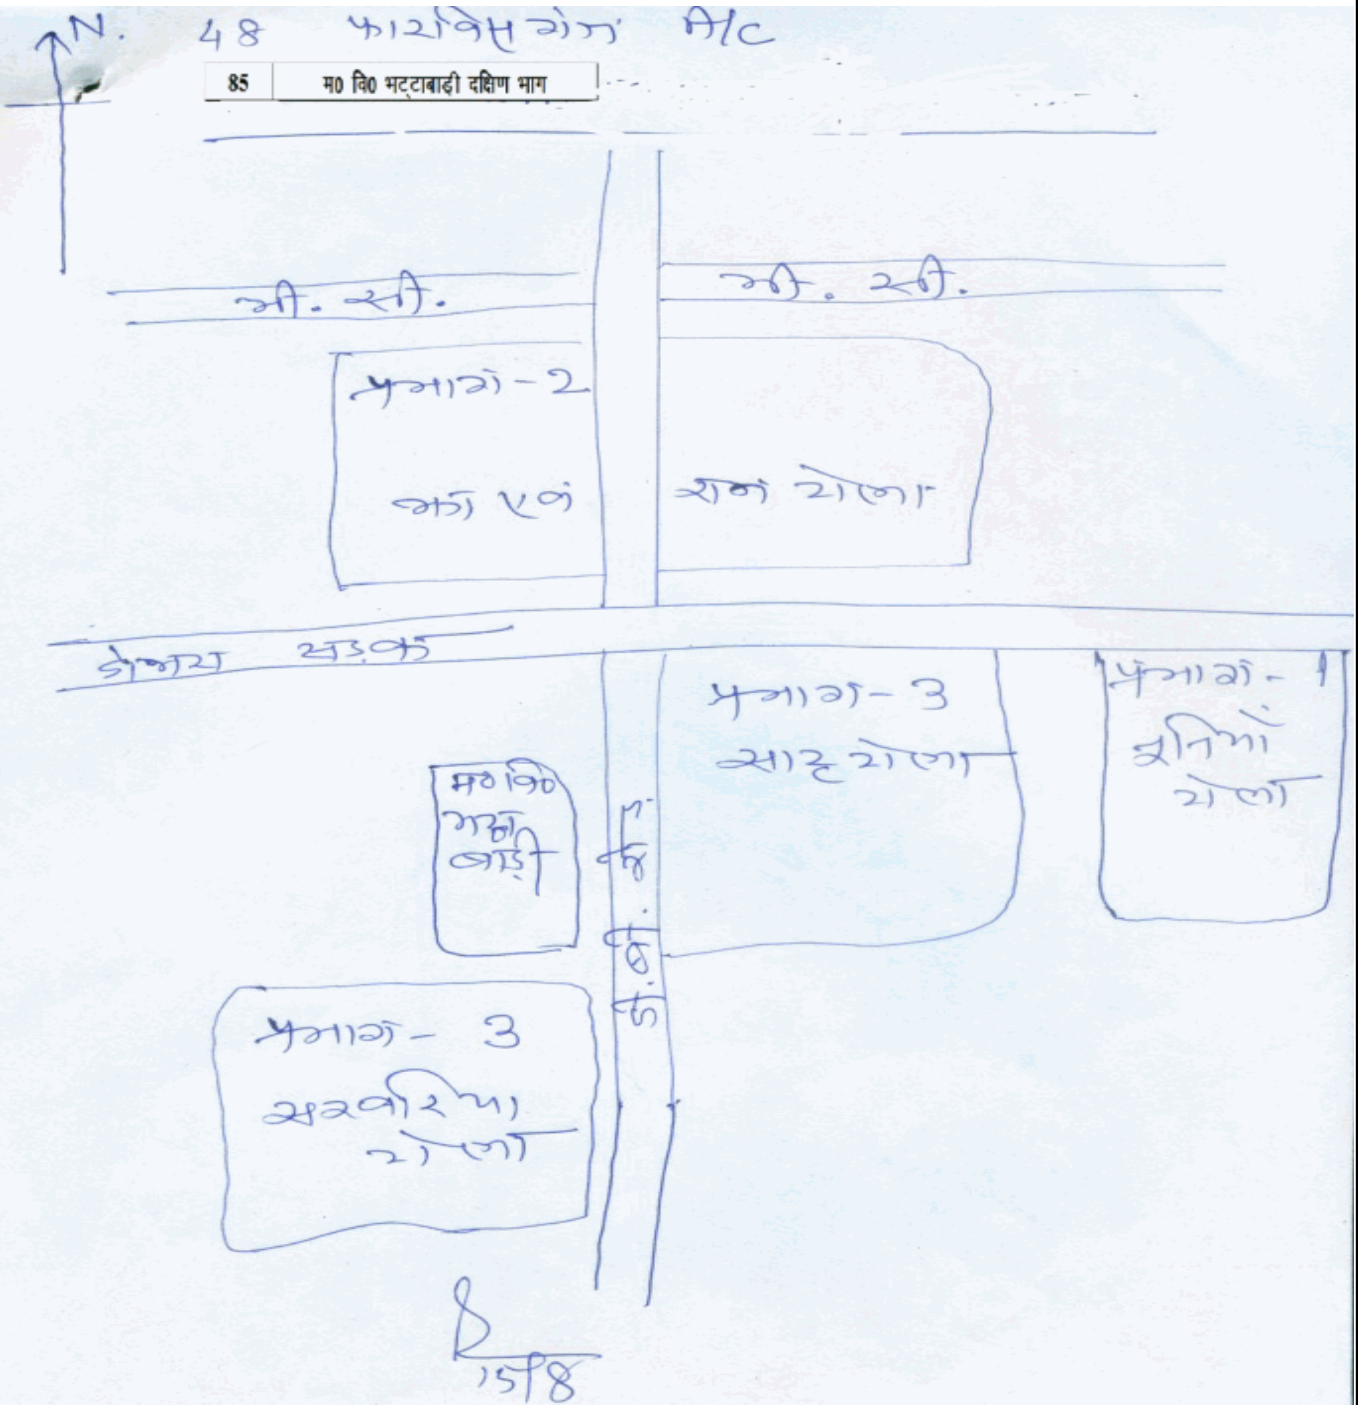 N. 48 फारबिसगंज A/C
85 म0 वि0 भट्टाबाड़ी दक्षिण भाग
भी. सी.
भी. सी.
प्रभाग - 2
झा एवं
राम टोला
सड़क
प्रभाग - 3
साह टोला
प्रभाग - 1
टोला
म० वि०
भट्टा
बाड़ी
प्रभाग - 3
सरवरिया
टोला
15/8